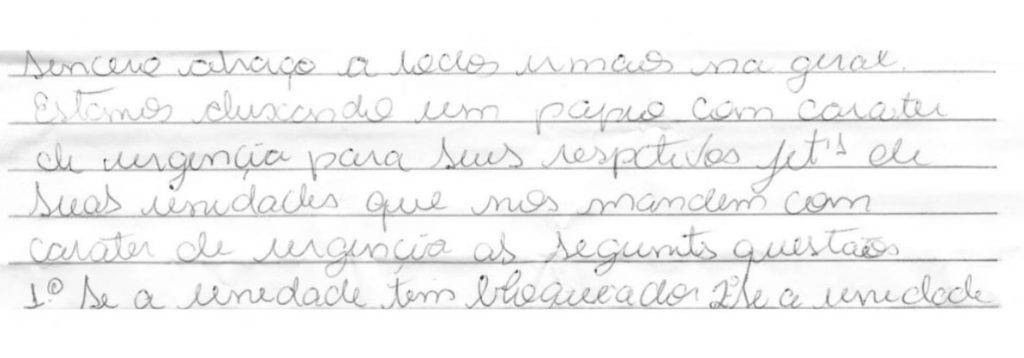 sencero abraço a todos irmãos na geral.
Estamos deixando um papiro com carater
de urgençia para seus respetivos jet's de
suas unidades que nos mandem com
carater de urgençia as seguints questãos
1º se a unedade tem bloqueador 2º se a unedade